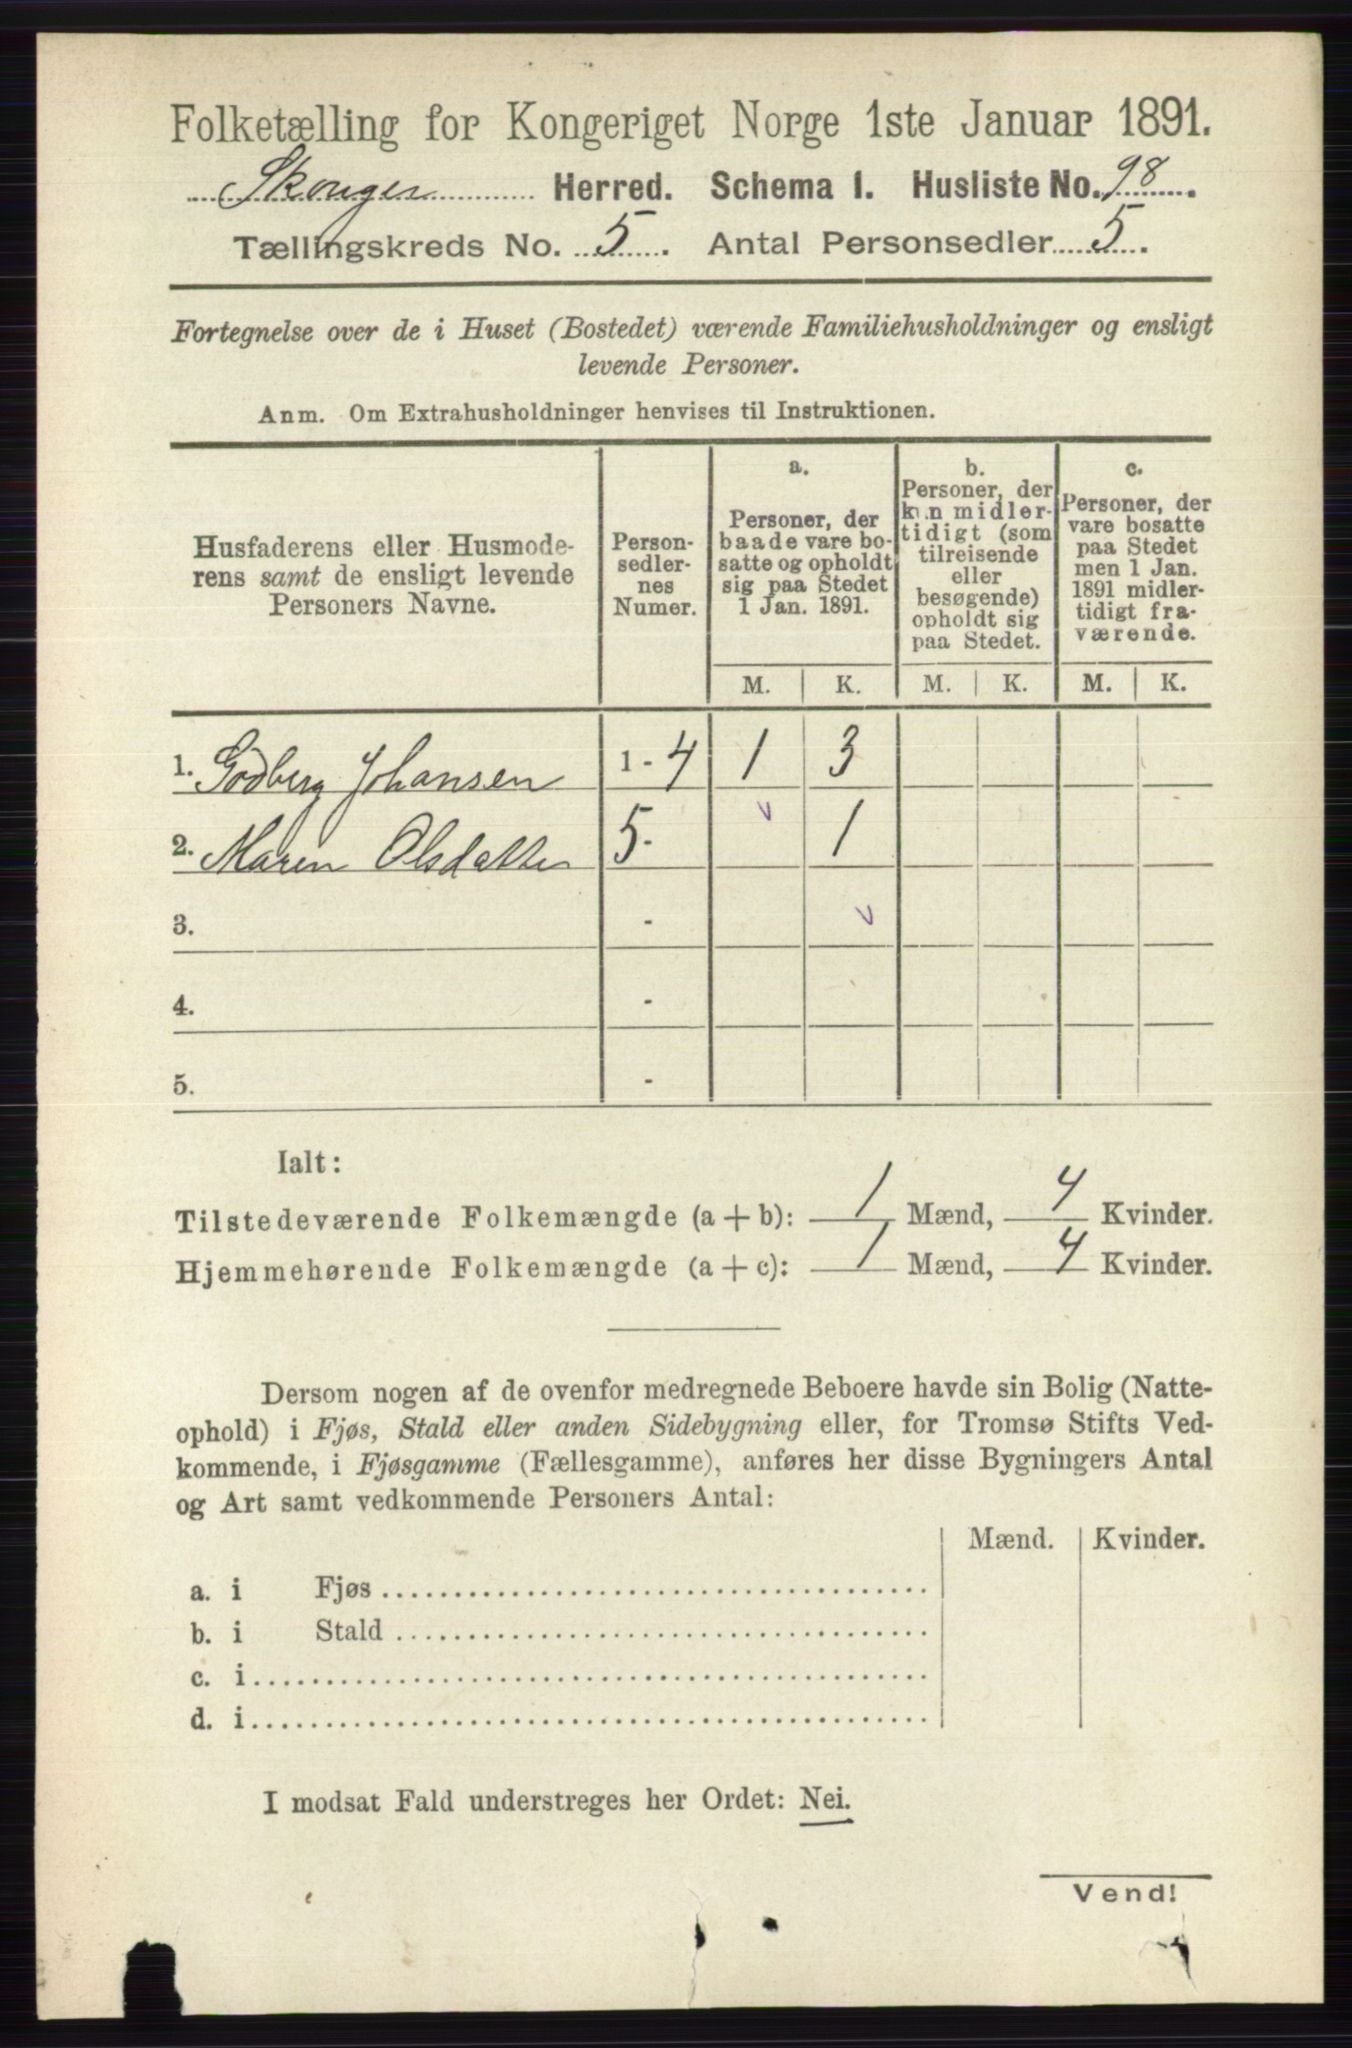 Folketælling for Kongeriget Norge 1ste Januar 1891.
Skouger Herred. Schema I. Husliste No. 98.
Tællingskreds No. 5. Antal Personsedler 5.
Fortegnelse over de i Huset (Bostedet) værende Familiehusholdninger og ensligt
levende Personer.
Anm. Om Extrahusholdninger henvises til Instruktionen.
Husfaderens eller Husmode-
rens samt de ensligt levende
Personers Navne.
Person-
sedler-
nes
Numer.
a.
Personer, der
baade vare bo-
satte og opholdt
sig paa Stedet
1 Jan. 1891.
b.
Personer, der
kun midler-
tidigt (som
tilreisende
eller
besøgende)
opholdt sig
paa Stedet.
c.
Personer, der
vare bosatte
paa Stedet
men 1 Jan.
1891 midler-
tidigt fra-
værende.
M. K. M. K. M. K.
1. Godberg Johansen 1-4 1 3
2. Maren Olsdatter 5- 1
3. -
4. -
5. -
Ialt:
Tilstedeværende Folkemængde (a + b): 1 Mænd, 4 Kvinder.
Hjemmehørende Folkemængde (a + c): 1 Mænd, 4 Kvinder.
Dersom nogen af de ovenfor medregnede Beboere havde sin Bolig (Natte-
ophold) i Fjøs, Stald eller anden Sidebygning eller, for Tromsø Stifts Ved-
kommende, i Fjøsgamme (Fællesgamme), anføres her disse Bygningers Antal
og Art samt vedkommende Personers Antal:
Mænd. Kvinder.
a. i Fjøs
b. i Stald
c. i
d. i
I modsat Fald understreges her Ordet: Nei.
Vend!